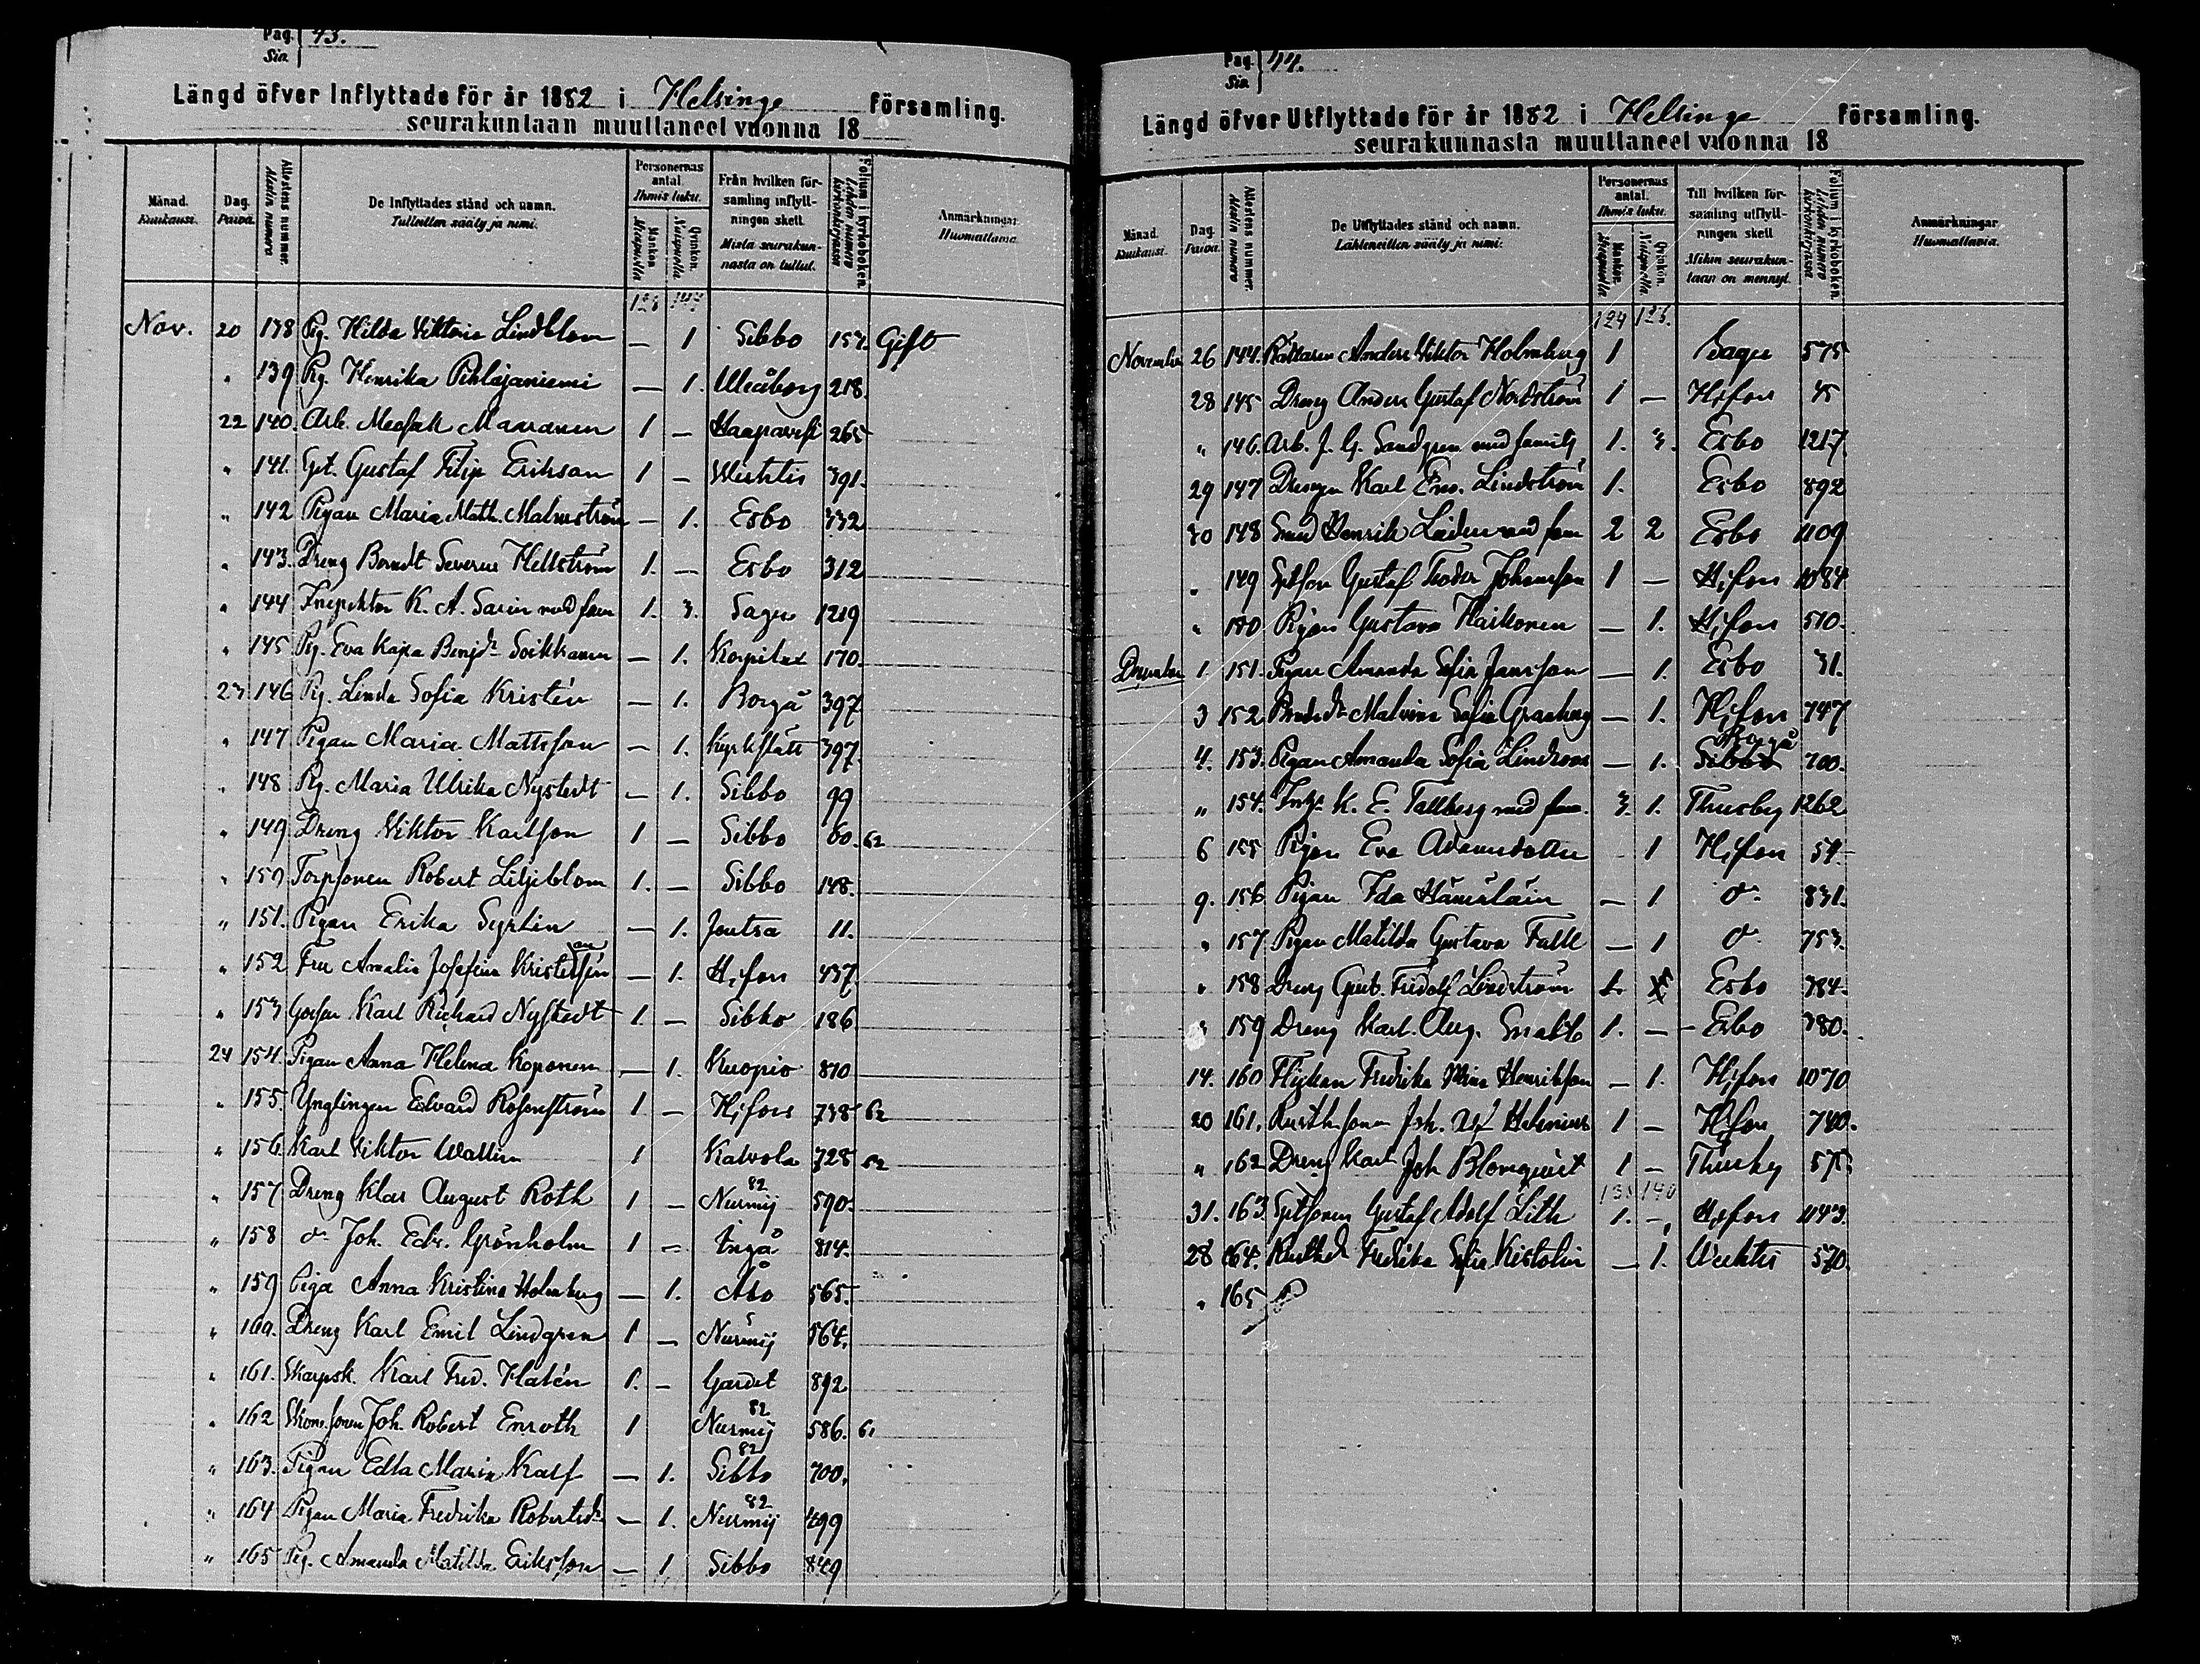 Pag. 43.
Sia.
Längd öfver Inflyttade för år 1882 i Helsinge församling.
seurakuntaan muuttaneet vuonna 18
Månad. Kuukausi.
Dag. Päivä.
Attestens nummer. Alestin numero
De Inflyttades stånd och namn.
Tulleitten sääty ja nimi.
Personernas antal. Ihmis luku.
Mankön Miespuolta
Qvinkön. Naispuolta
Från hvilken församling inflyttningen skett
Mistä seurakunnasta on tullut.
Folium i kyrkoboken. Lehden numero kirkonkirjassa
Anmärkningar
Huomattama
128 147
Nov. 20 138 Pig. Hilda Viktoria Lindblom — 1 Sibbo 157. Gift
" 139 Pig. Henrika Pihlajaniemi — 1. Uleåborg 218.
22 140. Arb. Mesak Mananen 1 — Haapavesi 265
" 141. Gst. Gustaf Filip Erikson 1 — Wichtis 391.
" 142 Pigan Maria Math. Malmström — 1. Esbo 332
" 143. Dreng Berndt Severus Hellström 1. — Esbo 312
" 144 Inspektor K. A. Sarin med fam 1. 3. Sagu 1219
" 145 Pig. Eva Kajsa Benjdr Soikkanen — 1. Korpilax 170.
23 146 Pig. Linda Sofia Kristén — 1. Borgå 397
" 147 Pigan Maria Mattsson — 1. Kyrkslätt 397.
" 148 Pig. Maria Ulrika Nystedt — 1. Sibbo 99
" 149 Dreng Viktor Karlson 1 — Sibbo 60. 62
" 150 Torpsonen Robert Liljeblom 1. — Sibbo 148.
" 151. Pigan Erika Syrlin — 1. Joutsa 11.
" 152 Fru Amalia Josefina — 1. H:fors 437.
" 153 Karl Richard Nystedt 1. — Sibbo 186
24 154. Pigan Anna Helena Koponen — 1. Kuopio 810
" 155. Ynglingen Edvard Rosenström 1. — H:fors 738 62
" 156 Karl Viktor Wallin 1 Kalvola 728 62
" 157 Dreng Klas August Roth 1 — Nurmij 82 590.
" 158 do Joh. Edv. Grönholm 1 — Ingå 814.
" 159 Piga Anna Kristina Holmberg — 1. Åbo 565.
" 160. Dreng Karl Emil Lindgren 1 — Nurmij 564.
" 161. Skarpsk. Karl Fred. Flatén 1. — Gardet 892
" 162 Joh. Robert Enroth 1 Nurmij 82 586. 61
" 163. Pigan Edla Maria Kalf — 1. Sibbo 82 700.
" 164 Pigan Maria Fredrika Robertsdr — 1. Nurmij 82 499
" 165 Pig. Amanda Matilda Eriksson — 1 Sibbo 849
Pag. 44.
Sia.
Längd öfver Utflyttade för år 1882 i Helsinge församling.
seurakunnasta muuttaneet vuonna 18
Månad. Kuukausi.
Dag. Päivä.
Attestens nummer. Alestin numero
De Utflyttades stånd och namn.
Lähteneitten sääty ja nimi.
Personernas antal. Ihmis luku.
Mankön. Miespuolta
Qvinkön. Naispuolta.
Till hvilken församling utflyttningen skett
Mihin seurakuntaan on mennyt.
Folium i kyrkoboken. Lehden numero kirkonkirjassa
Anmärkningar
Huomattavia.
124 126.
November 26 144. Anders Viktor Holmberg 1 Sagu 575
28 145 Dreng Anders Gustaf Nordström 1 — H:fors 45
" 146. Arb. J. G. Sandgren med familj 1. 3. Esbo 1217
29 147 Drengen Karl Lindström 1. Esbo 892
30 148 Smed Henrik Lindén med fam 2 2 Esbo 1109
" 149 Gustaf Teodor Johansson 1 — H:fors 1084
" 150 Pigan Gustava Haikonen — 1. H:fors 510.
December 1. 151. Pigan Amanda Sofia Jansson — 1. Esbo 31.
3 152 Malvina Sofia Granberg — 1. H:fors 747
4. 153. Pigan Amanda Sofia Lindroos — 1. Sibbo Borgå 700.
" 154. K. E. Tallberg med fam. 3. 1. Thusby 1262
6 155 Pigan Eva Adamsdotter 1 H:fors 54
9. 156 Pigan Ida Hämäläin — 1 do 831.
" 157 Pigan Matilda Gustava Falk — 1 do 753.
" 158 Dreng Gust. Fridolf Lindström 1. Esbo 784.
" 159 Dreng Karl. Aug. Snabb 1. — Esbo 380.
14. 160 Flickan Fredrika Mina Henrikson — 1. H:fors 1070
20 161. Joh. Helenius 1 — H:fors 740.
" 162 Dreng Karl Joh Blomqvist 1 — Thusby 575
138 140
31. 163. Gustaf Adolf Lith 1. — H:fors 1143.
28 164. Fredrika Sofia — 1. Wichtis 570.
" 165